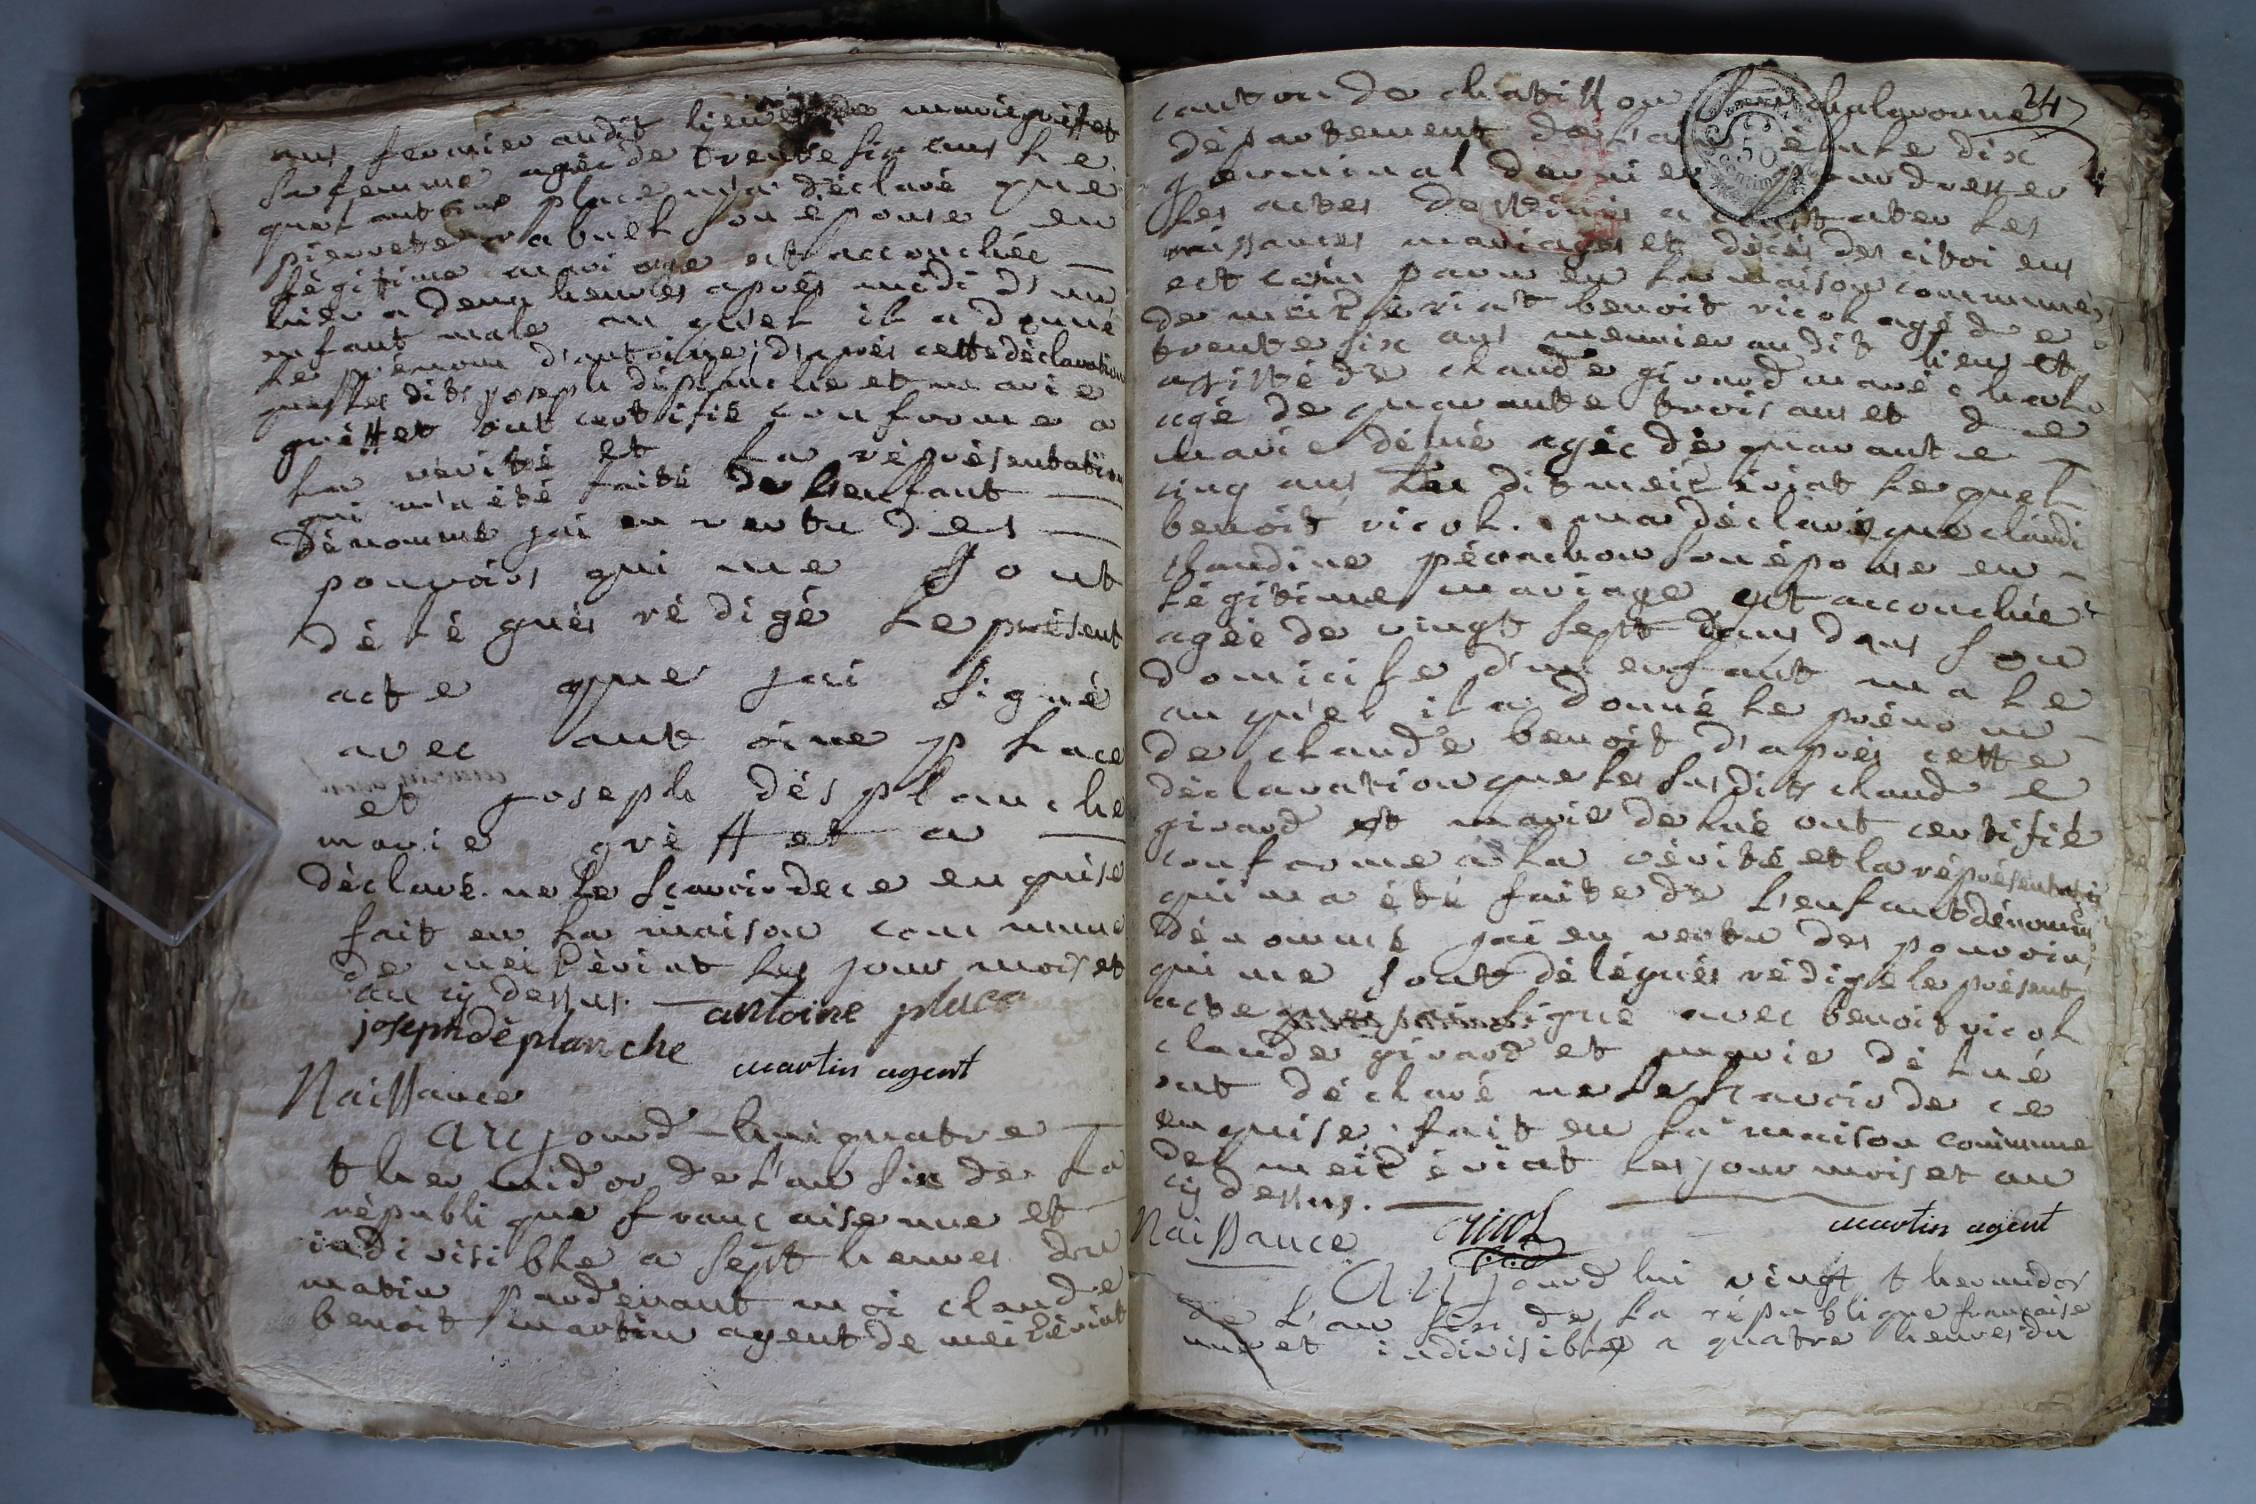 ans fermier audit lieu et de marie grettet
sa femme agée de trente six ans le
quel antoine place m'a déclaré que
pierrete rabuel son épouse en
légitime mariage est accouchée
hier a deux heures après midi d'un
enfant male au quel il a donné
le prénom d'antoine, d'après cette déclaration
que les dits joseph displanche et marie
grèttet ont certifié conforme a
la vérité et la réprésentation
qui m'a été faite de lenfant
dénommé jai en vertu des
pouvoirs qui me sont
délégués rédigé le présent
acte que jai signé
avec antoine place
et joseph désplanche
marie grèttet a
déclaré ne le scavoir de ce enquise
fait en la maison commune
de meizériat les jour mois et
an cy dessus.
antoine place
joseph déplanche
martin agent
Naissance
aujourd-hui quatre
thermidor de l'an six de la
républi que francaise une et
indivisible a sept heures du
matin pardevant moi claude
benoit martin agent de meizériat
24
canton de chatillon chalaronne
département de l'ain élu le dix
germinal dernier pour dresser
les actes destinés a constater les
naissances mariages et décès des citoiens
est comparu en la maison commune
de meizériat benoit nicol agé de
trente six ans meunier audit lieu et
assisté de claude girard maréchal
agé de quarante trois ans et de
marie déhié agée dè quarante
cinq ans du dit meizériat le quel
benoit nicol. ma déclaré que claudi
claudine pérachon son épouse en
légitime mariage est accouchée
agée de vingt sept ans dans son
domicile d'un enfant male
au quel il a donné le prénom
de claude benoit d'après cette
déclaration que les susdits claude
girard et marie déhié ont certifié
conforme a la vérité et la réprésentation
qui m'a été faite de l'enfant dénommé
dénommé jai en vertu des pouvoirs
qui me sont délégués rédigé le présent
acte que jai signé avec benoit nicol
claude girard et marie déhié
ont déclaré ne le scavoir de ce
enquise. fait en la maison commune
de meizériat les jour mois et an
cy dessus.
nicol
martin agent
Naissance
Aujourd hui vingt thermidor
de l'an six de la république francaise
une et indivisible a quatre heures du